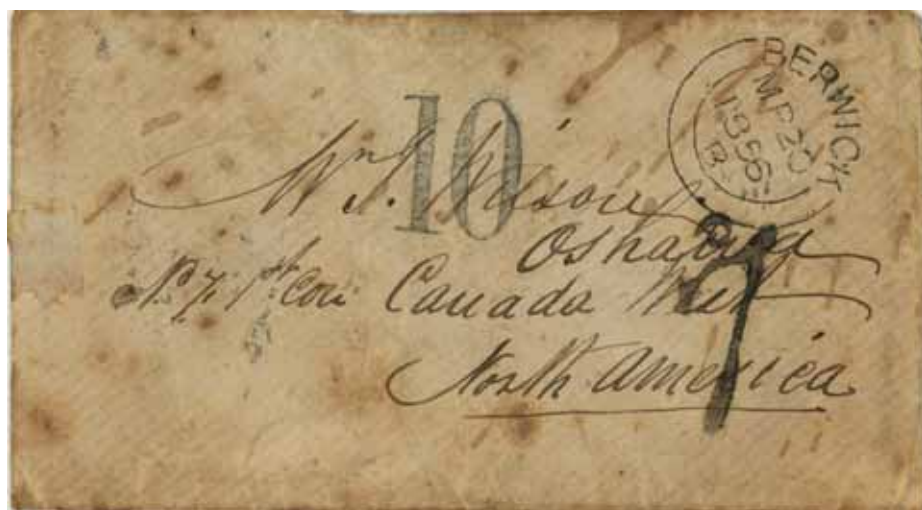 BERWICK
MR 20
1856
B
10
Wm J. Wilson
Oshawa
No 7. 1st con Canada West
North America